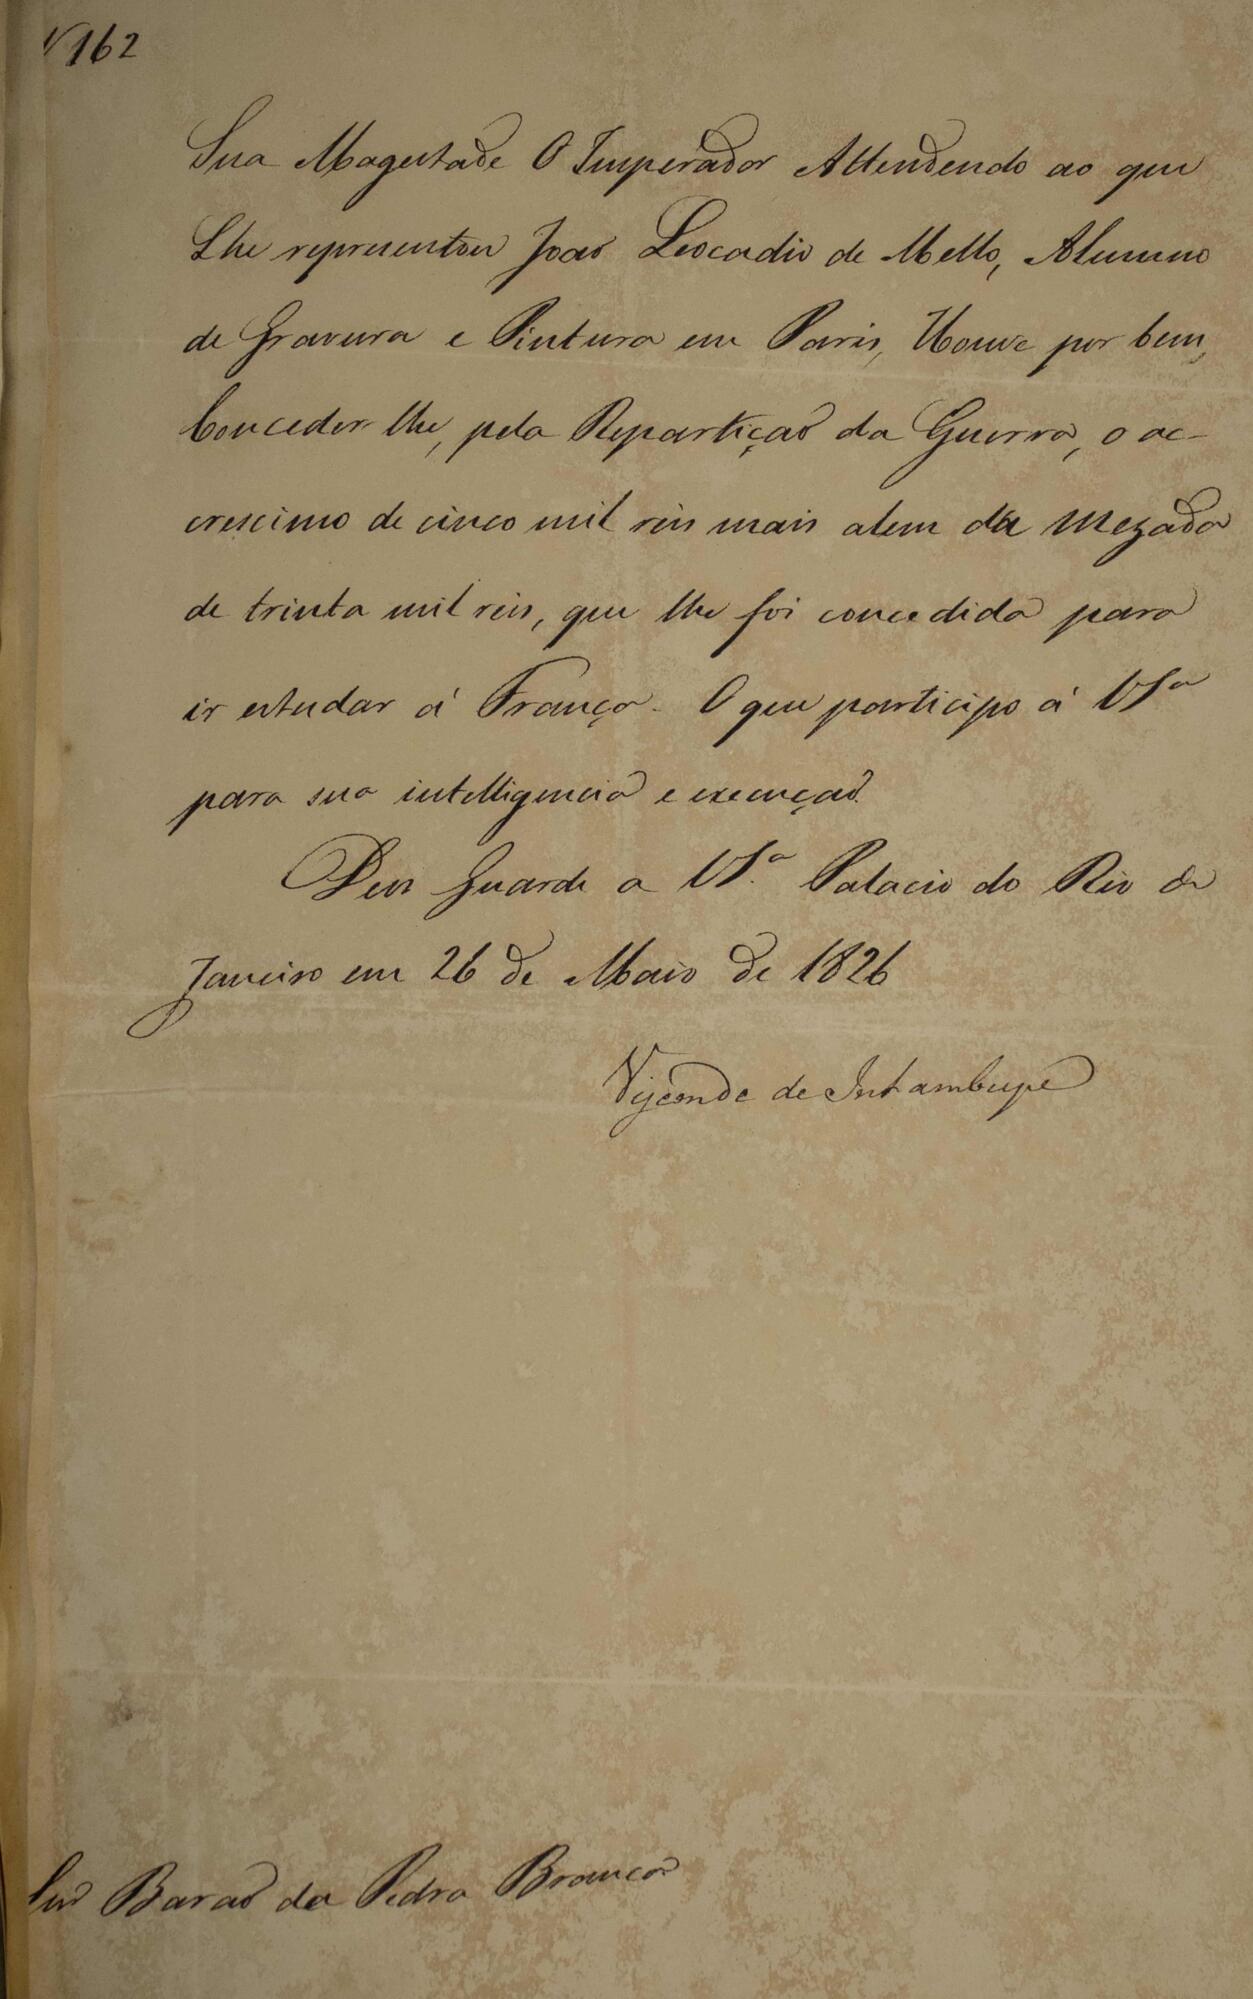 N 162
Sua Magestade O Imperador Attendendo ao que
Lhe representou João Leocadio de Mello, Alumno
de Gravura e Pintura em Paris, Houve por bem,
Conceder-lhe, pela Repartição da Guerra, o ac-
crescimo de cinco mil reis mais alem da Mezada
de trinta mil reis, que lhe foi concedida para
ir estudar á França. O que participo á VSª
para sua intelligencia e execução.
Deos Guarde a VSª. Palacio do Rio de
Janeiro em 26 de Maio de 1826
Visconde de Inhambupe
Snr Barão da Pedra Branca